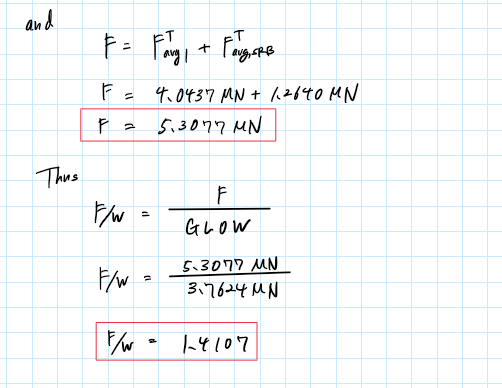 and
F = F^T_avg1 + F^T_avg,SRB
F = 4.0437 MN + 1.2640 MN
F = 5.3077 MN
Thus
F/W = F / GLOW
F/W = 5.3077 MN / 3.7624 MN
F/W = 1.4107